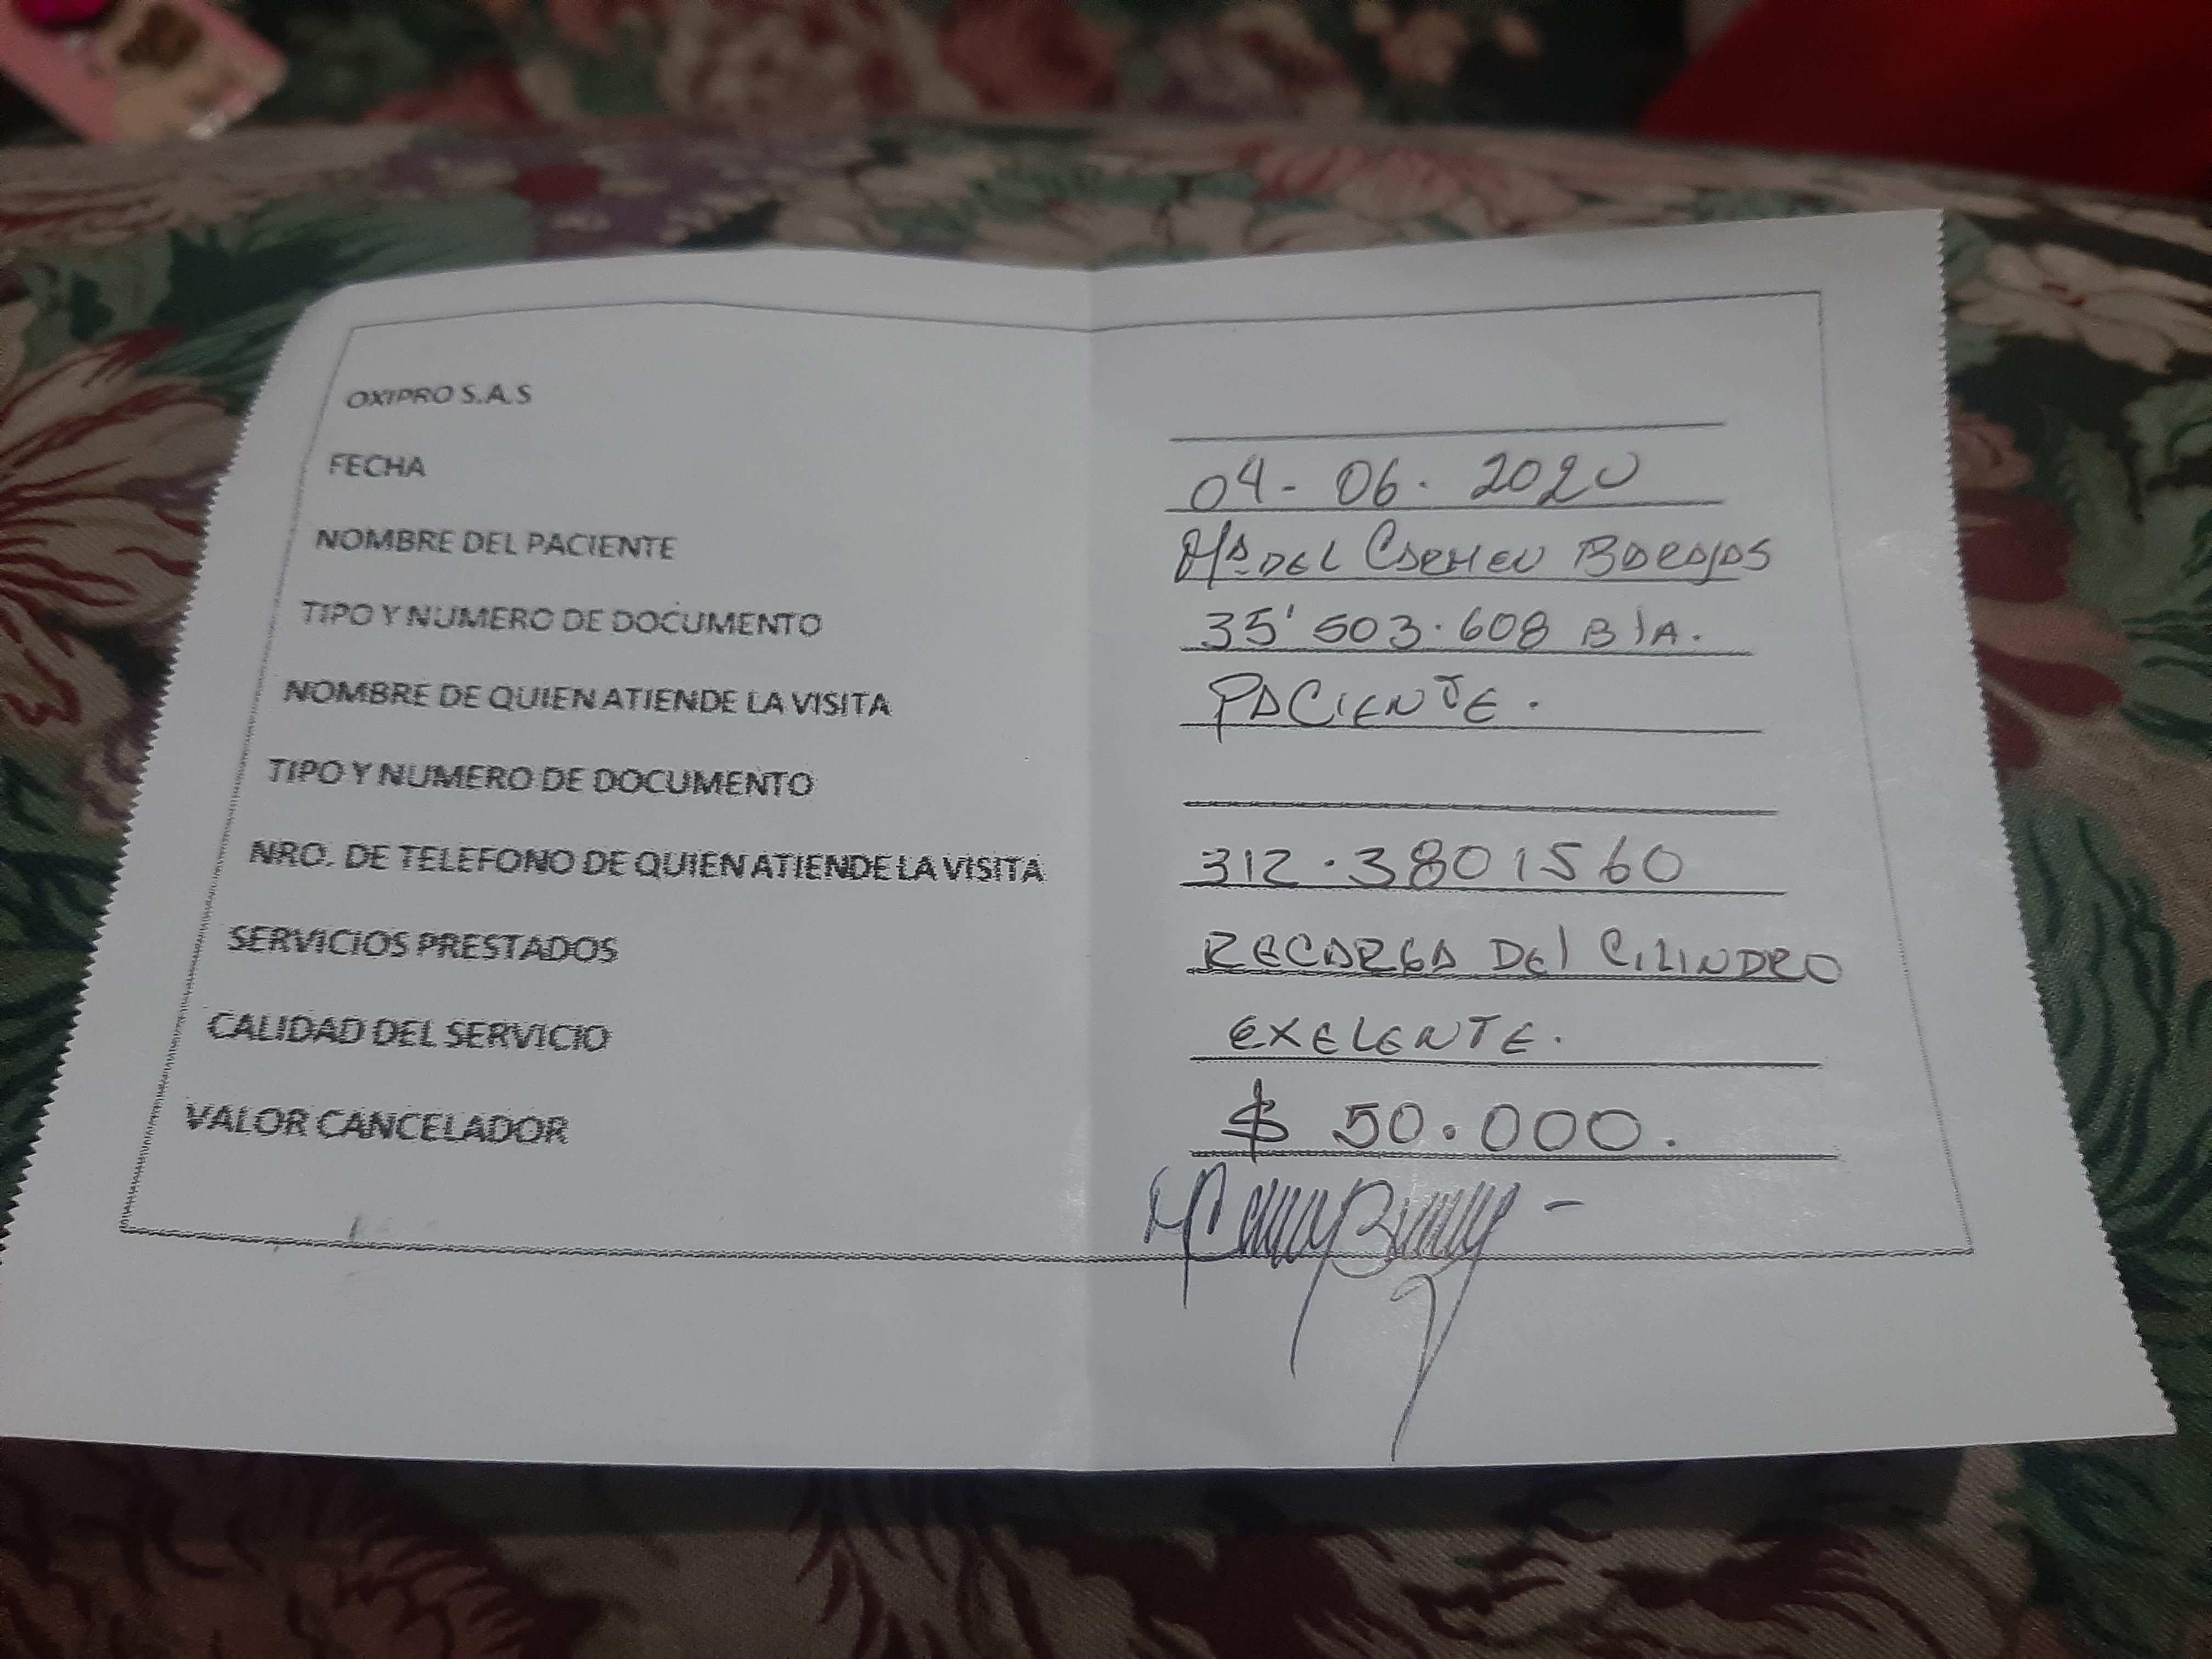 OXIPRO S.A.S
FECHA 04-06.2020
NOMBRE DEL PACIENTE Mª DEL CARMEN BARAJAS
TIPO Y NUMERO DE DOCUMENTO 35'503.608 B/A.
NOMBRE DE QUIEN ATIENDE LA VISITA PACIENTE.
TIPO Y NUMERO DE DOCUMENTO
NRO. DE TELEFONO DE QUIEN ATIENDE LA VISITA 312.3801560
SERVICIOS PRESTADOS RECARGA DEL CILINDRO
CALIDAD DEL SERVICIO EXELENTE.
VALOR CANCELADOR $ 50.000.